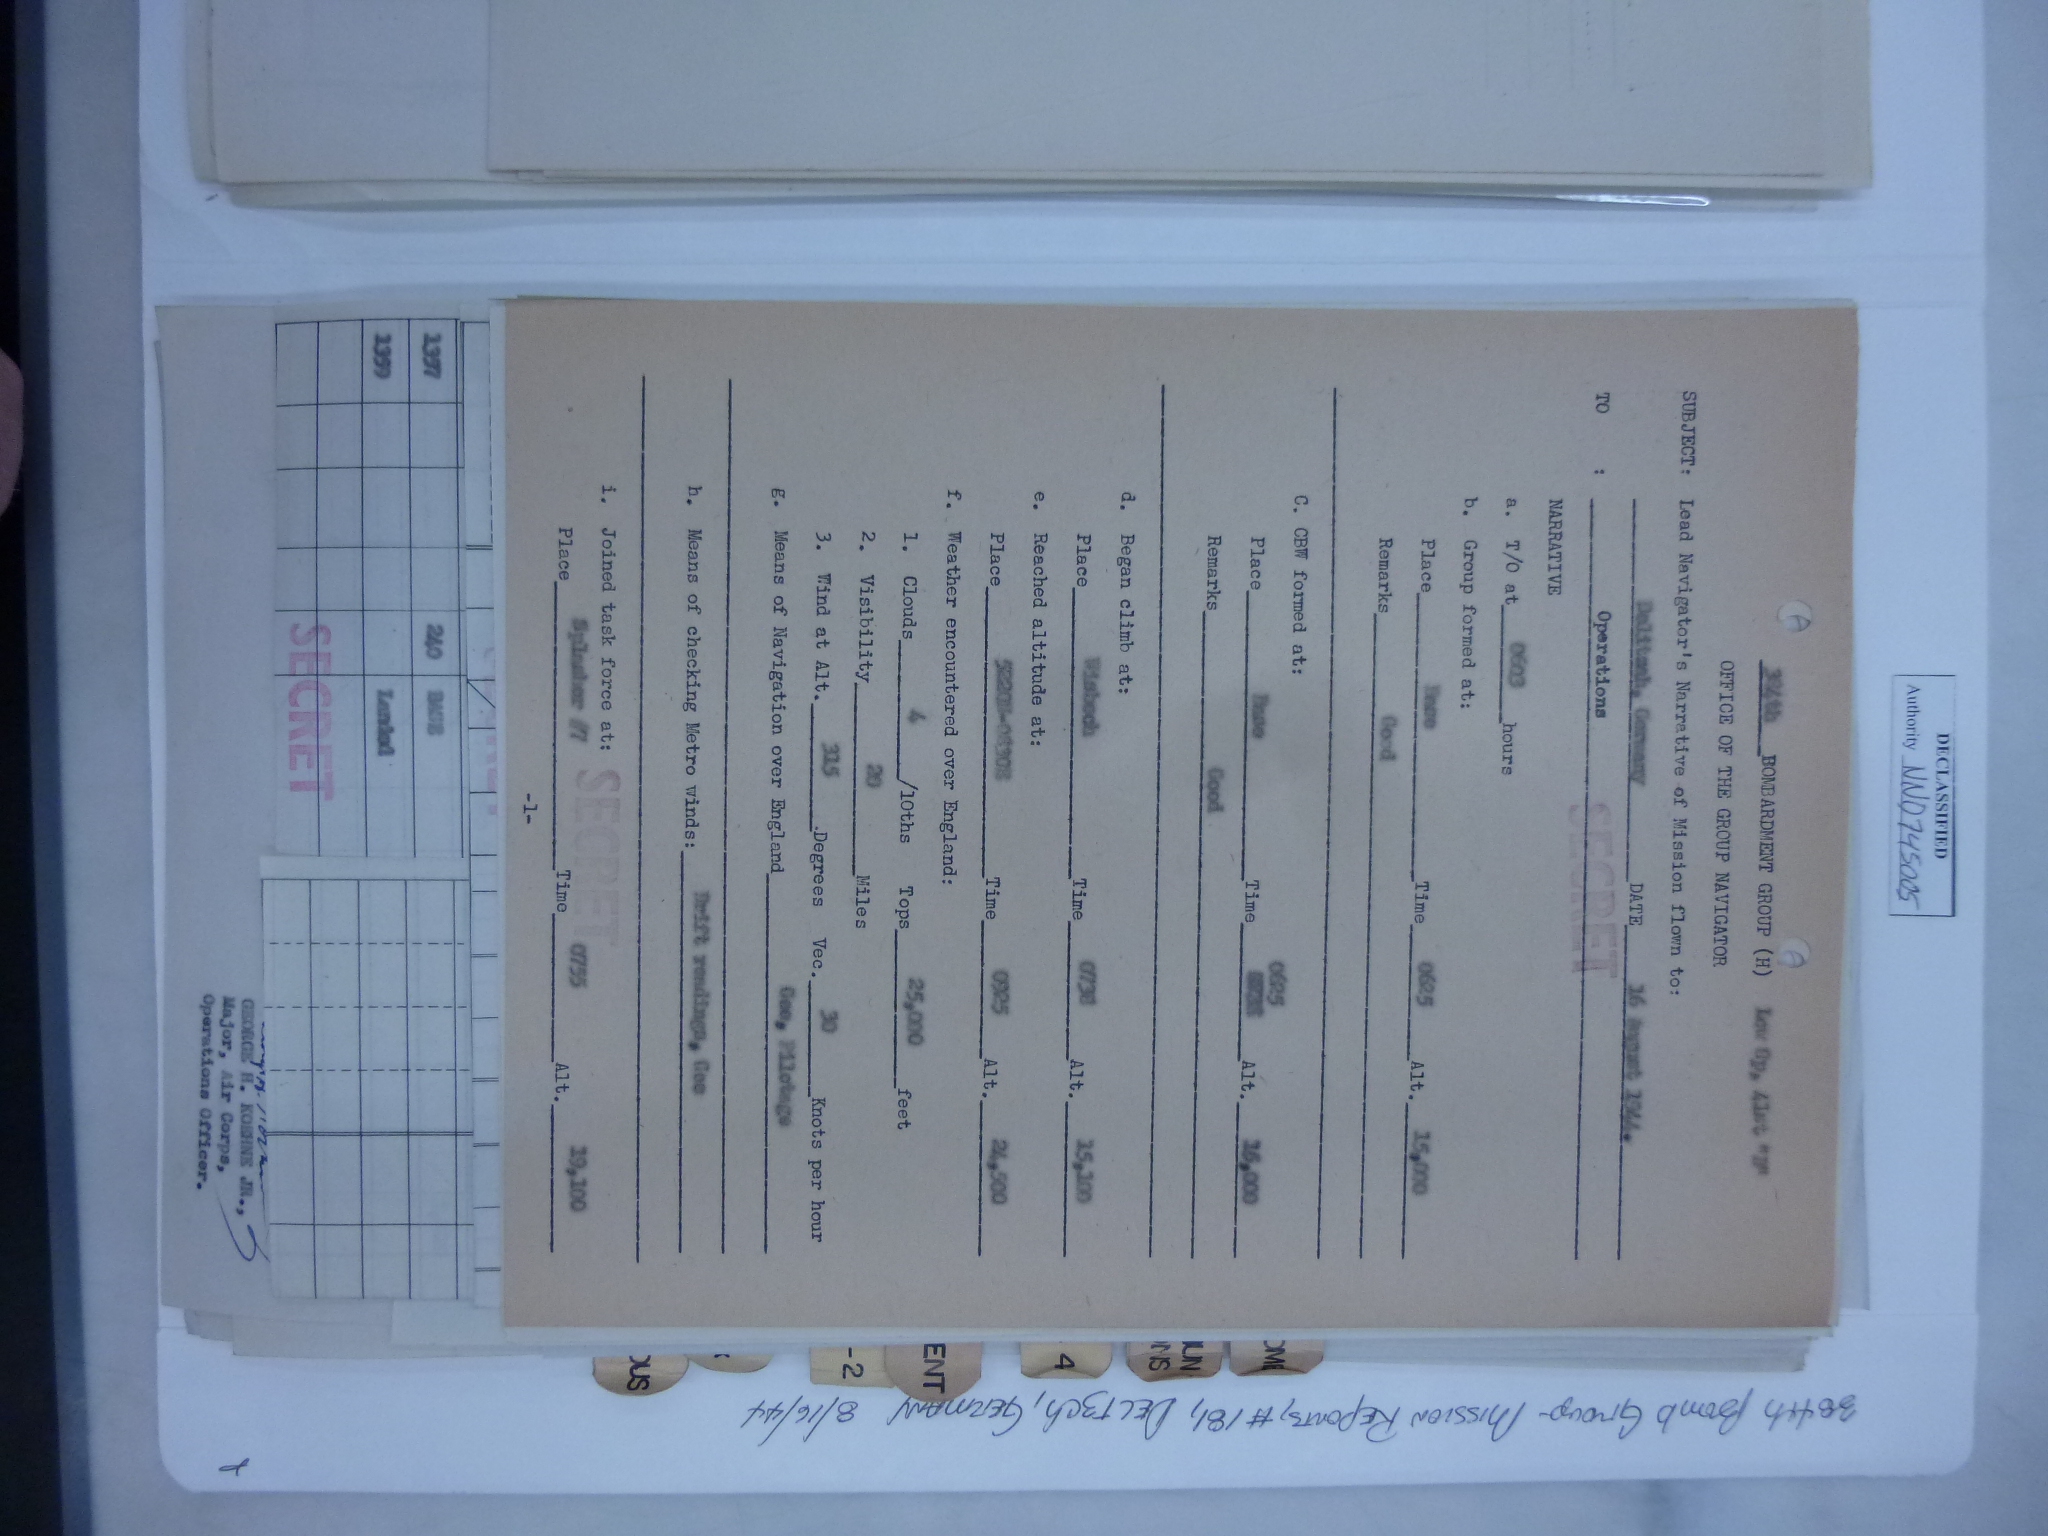 DECLASSIFIED
Authority NND745005
384th BOMBARDMENT GROUP (H) Low Gp, 41st "B"
OFFICE OF THE GROUP NAVIGATOR
SUBJECT: Lead Navigator's Narrative of Mission flown to:
Delitzsch, Germany DATE 16 August 1944.
TO : Operations
SECRET
NARRATIVE
a. T/O at 0603 hours
b. Group formed at:
Place Base Time 0625 Alt. 15,000
Remarks Good
C. CBW formed at:
Place Base Time 0625 Alt. 16,000
Remarks Good
d. Began climb at:
Place Wisbech Time 0738 Alt. 15,100
e. Reached altitude at:
Place Time 0925 Alt. 24,500
f. Weather encountered over England:
1. Clouds 4 /10ths Tops 25,000 feet
2. Visibility 20 Miles
3. Wind at Alt. 315 Degrees Vec. 30 Knots per hour
g. Means of Navigation over England Gee, Pilotage
h. Means of checking Metro winds: Drift readings, Gee
i. Joined task force at:
SECRET
Place Splasher #7 Time 0755 Alt. 19,100
-1-
1357 240 BASE
1359 Landed
SECRET
GEORGE H. KOEHNE JR.,
Major, Air Corps,
Operations Officer.
OME
UN
NS
4
ENT
-2
OUS
384th Bomb Group - Mission Reports, #181, Delitzsch, Germany 8/16/44